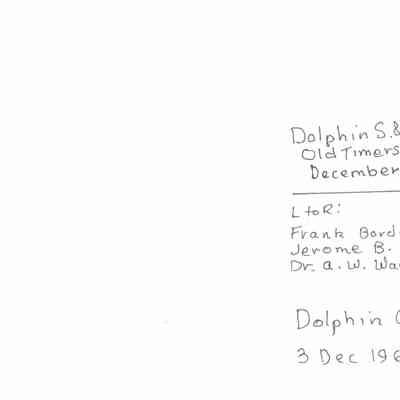 Dolphin S.&
Old Timers
December
L to R:
Frank Bord
Jerome B.
Dr. A. W. Wa
Dolphin C
3 Dec 196